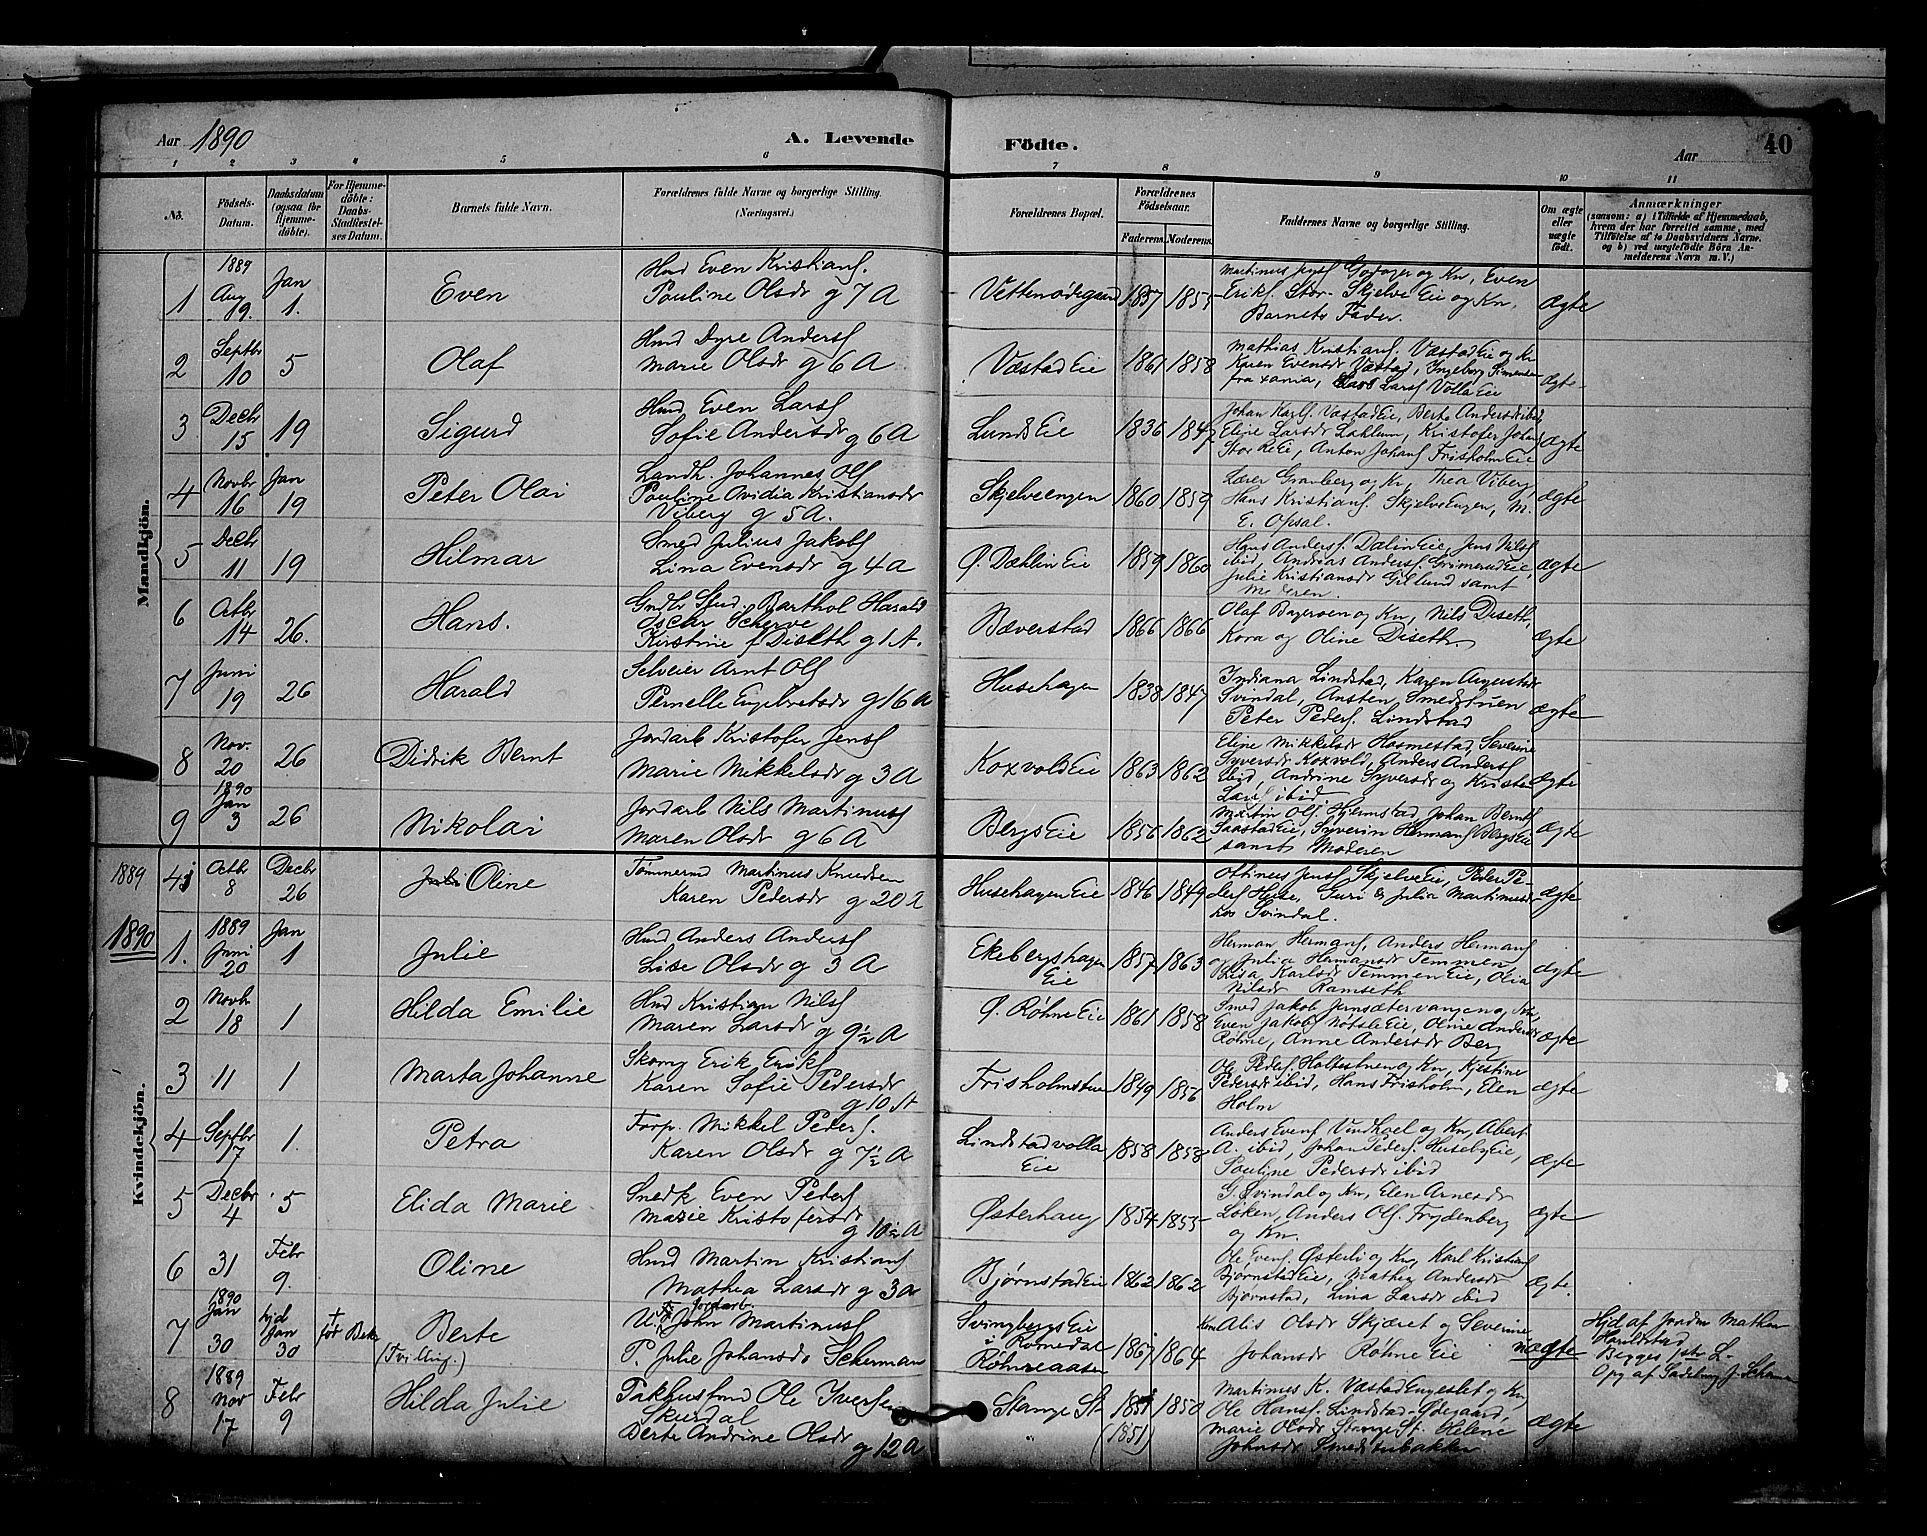 Aar 1890
A. Levende Födte.
Aar
40
1 2 3 4 5 6 7 8 9 10 11
No.
Födsels-Datum.
Daabsdatum (ogsaa for Hjemme-döbte).
For Hjemme-döbte: Daabs-Stadfæstelses Datum.
Barnets fulde Navn.
Forældrenes fulde Navne og borgerlige Stilling. (Næringsvei.)
Forældrenes Bopæl.
Forældrenes Födselsaar.
Faderens. Moderens.
Faddernes Navne og borgerlige Stilling.
Om ægte eller uægte födt.
Anmærkninger
(saasom: a) i Tilfælde af Hjemmedaab, hvem der har forrettet samme, med Tilföielse af to Daabsvidners Navne, og b) ved uægtefödte Börn Anmelderens Navn m. V.)
Mandkjön.
1 1889 Aug 19. Jan 1. Even
Hmd Even Kristians.
Pauline Olsdr g 7 A
Vettenødegaard 1857 1855
Even
Eriks. Stor-Skjelve Eie og Kn,
Barnets Fader.
ægte
2 Septbr 10 5 Olaf
Hmd Dyre Anders
Marie Olsdr g 6 A
Væstad Eie 1861 1858
Mathias Kristians. Væstad Eie og Kn
Karen Evensdr Væstad, Ingeborg Simensen
fra Xania, Lars Lars Volla Eie
ægte
3 Decbr 15 19 Sigurd
Hmd, Even Lars
Sofie Andersdr g 6 A
Lunds Eie 1836 1847
Johan Karls. Væstad Eie, Berte Andersdr ibid
Eline Larsdr Lahlum, Kristofer Johans
Anton Johans Frisholm Eie
ægte
4 Novbr 16 Jan 19 Peter Olai
Landh. Johannes Ols
Pauline Avidia Kristiansdr
Viberg g 5 A.
Skjelveengen 1860 1859
Lærer Granberg og Kn, Thea Viberg,
Hans Kristians. Skjelve Engen, M.
E. Opsal.
ægte
5 Decbr 11 19 Hilmar
Smed Julius Jakobs
Lina Evensdr g 4 A
Ø. Dæhlin Eie 1859 1860
Hans Anders. Dalin Eie, Jens Nils
ibid, Andreas Anders. Grimerud Eie,
Julie Kristiansdr Gillund samt
Moderen.
ægte
6 Octbr 14 26. Hans.
Barthol Harald
Oscar Scherve
Kirstine f Diseth g 1 A.
Bæverstad 1866 1866
Olaf Bageroen og Kn, Nils Diseth,
Kora og Oline Diseth.
ægte
7 Juni 19 26 Harald
Selveier Arnt Ols
Pernelle Engebretsdr g 16 A
Husehagen 1838 1847
Indiana Lindstad, Karen Augustadr
Svindal, Austen Smedstuen
Peter Peders. Lindstad
ægte
8 Nov. 20 26 Didrik Bernt
Jordarb Kristofer Jens
Marie Mikkelsdr g 3 A
Koxvold Eie 1863 1862
Eline Mikkelsdr Hosmestad, Severine
Syversdr Koxvold, Anders Anders
ibid, Andrine Syversdr og
Lars ibid.
ægte
9 1890 Jan 3 26 Nikolai
Jordarb Nils Martinus
Maren Olsdr g 6 A
Bergs Eie 1856 1862
Martin Ols. Hjelmstad, Johan Bernt
Saastad Eie, Syverin Hermans Bergs Eie
samt Moderen
ægte
Kvindekjön.
1889 41 Octbr 8 Decbr 26 Oline
Tømmermd Martinus Knudsen
Karen Pedersdr g 20 A
Husehagen Eie 1846 1849
Othinus Jens. Skjelve Eie, Peder Pe-
ders Huse, Guri & Julia Martinusdr
hos Svindal.
ægte
1890
1. 1889 Juni 20 Jan 1 Julie
Hmd Anders Anders
Lise Olsdr g 3 A
Ekebergshagen Eie 1857 1863
Herman Hermans, Anders Hermans
og Julia Hermansdr Temmen,
Lisa Karlsdr Temmen Eie, Olia
Nilsdr Ramseth
ægte
2 Novbr 18 1 Hilda Emilie
Hmd Kristian Nils
Maren Larsdr g 9½ A
Ø. Røhne Eie 1861 1858
Smed Jakob Jernsætervangen og Kn,
Even Jakobs Nøtsle Eie, Oline Andersdr
Røhne, Anne Andersdr Berg
ægte
3 11 1 Marta Johanne
Skomg Erik Eriks
Karen Sofie Pedersdr
g 10 A
Frisholmstuen 1849 1856
Ole Peders. Holtestuen og Kn, Kjestine
Pedersdr ibid, Hans Frisholm, Elen
Holm
ægte
4 Septbr 17 1. Petra
Forp. Mikkel Peders.
Karen Olsdr g 7½ A
Lindstadvolla Eie 1858 1858
Anders Evens Vindkael og Kn, Abert
A. ibid, Johan Peders. Huseby Eie,
Pauline Pedersdr ibid
ægte
5 Decbr 4 5 Elida Marie
Snedk Even Peders
Marie Kristofersdr
g 10½ A
Østerhaug 1854 1855
G. Svindal og Kn, Elen Arnesdr
Løken, Anders Ols. Frydenberg
og Kn.
ægte
6 31 Febr 9. Oline
Hmd Martin Kristians
Mathea Larsdr g 3 A
Bjørnstad Eie 1862 1862
Ole Evens Østerli og Kn, Karl Kristians
Bjørnstad Eie, Mathea Andersdr
Bjørnstad, Lina Larsdr ibid
ægte.
7 1890 Jan 30 hjd Jan 30 † før Bekr Berte
(Tvilling.)
Jordarb.
John Martinus
P. Julie Johansdr Scherman
Svingbergs Eie
i Romedal
Røhneaasen 1867 1864
Kone Alis Olsdr Skjæret og Severine
Johansdr Røhne Eie
uægte
Hjd af Jordm Mathea
Haraldstad
Begges 1ste L-
Opg af
8 1889 Nov 17 Febr 9 Hilda Julie
Pakhusfmd Ole Iversen
Skurdal
Berte Andrine Olsdr
g 12 A
Stange St 1851 1850
(1851)
Martinus K. Væstad Engeslet og Kn,
Ole Hans. Lindstad-Ødegaard,
Marie Olsdr Stange St. Helene
Johnsdr Smedstubakken
ægte